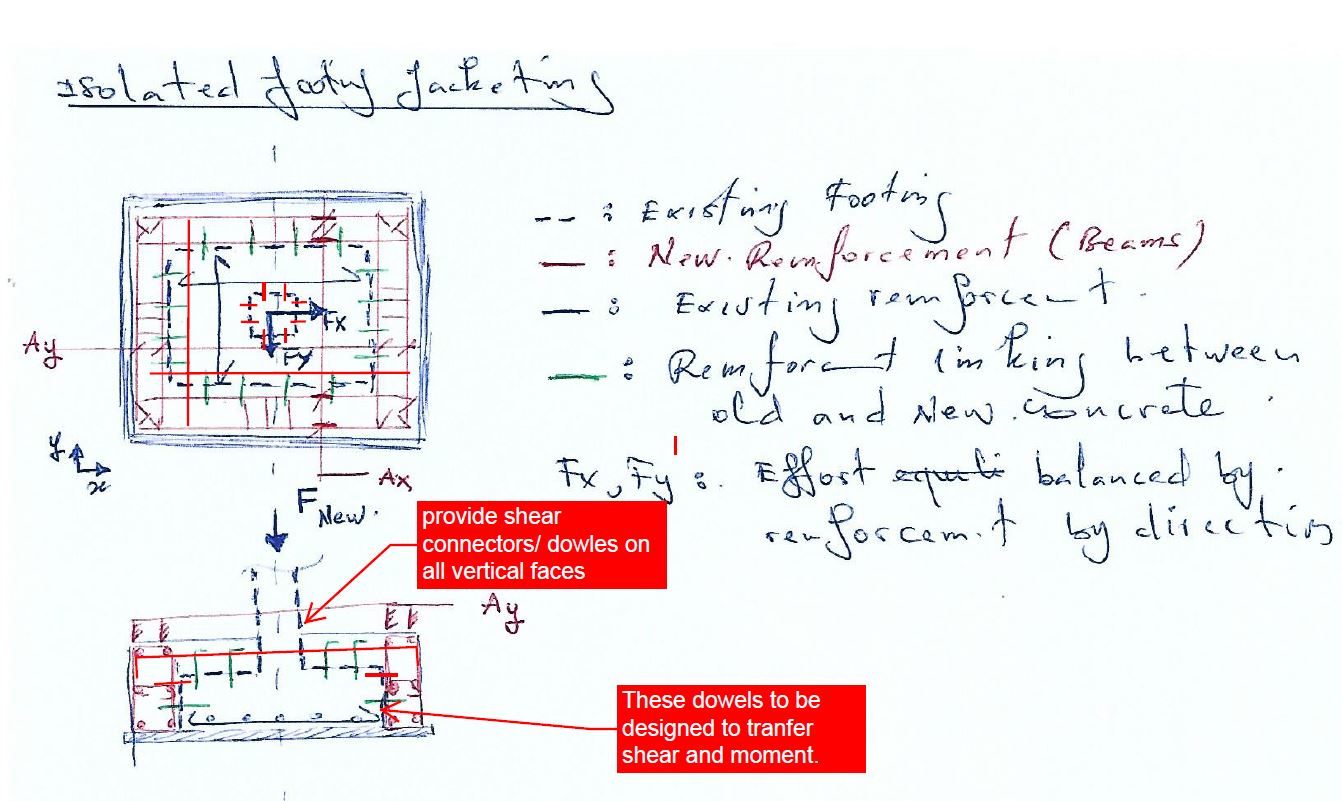 Isolated footing Jacketing
-- : Existing Footing
— : New Reinforcement (Beams)
— : Existing reinforcent.
— : Reinforcent linking between
old and New concrete.
Fx, Fy : Effort equili balanced by
reinforcement by direction
Fx
Fy
Ay
y
x
Ax
F New.
provide shear
connectors/ dowles on
all vertical faces
Ay
These dowels to be
designed to tranfer
shear and moment.